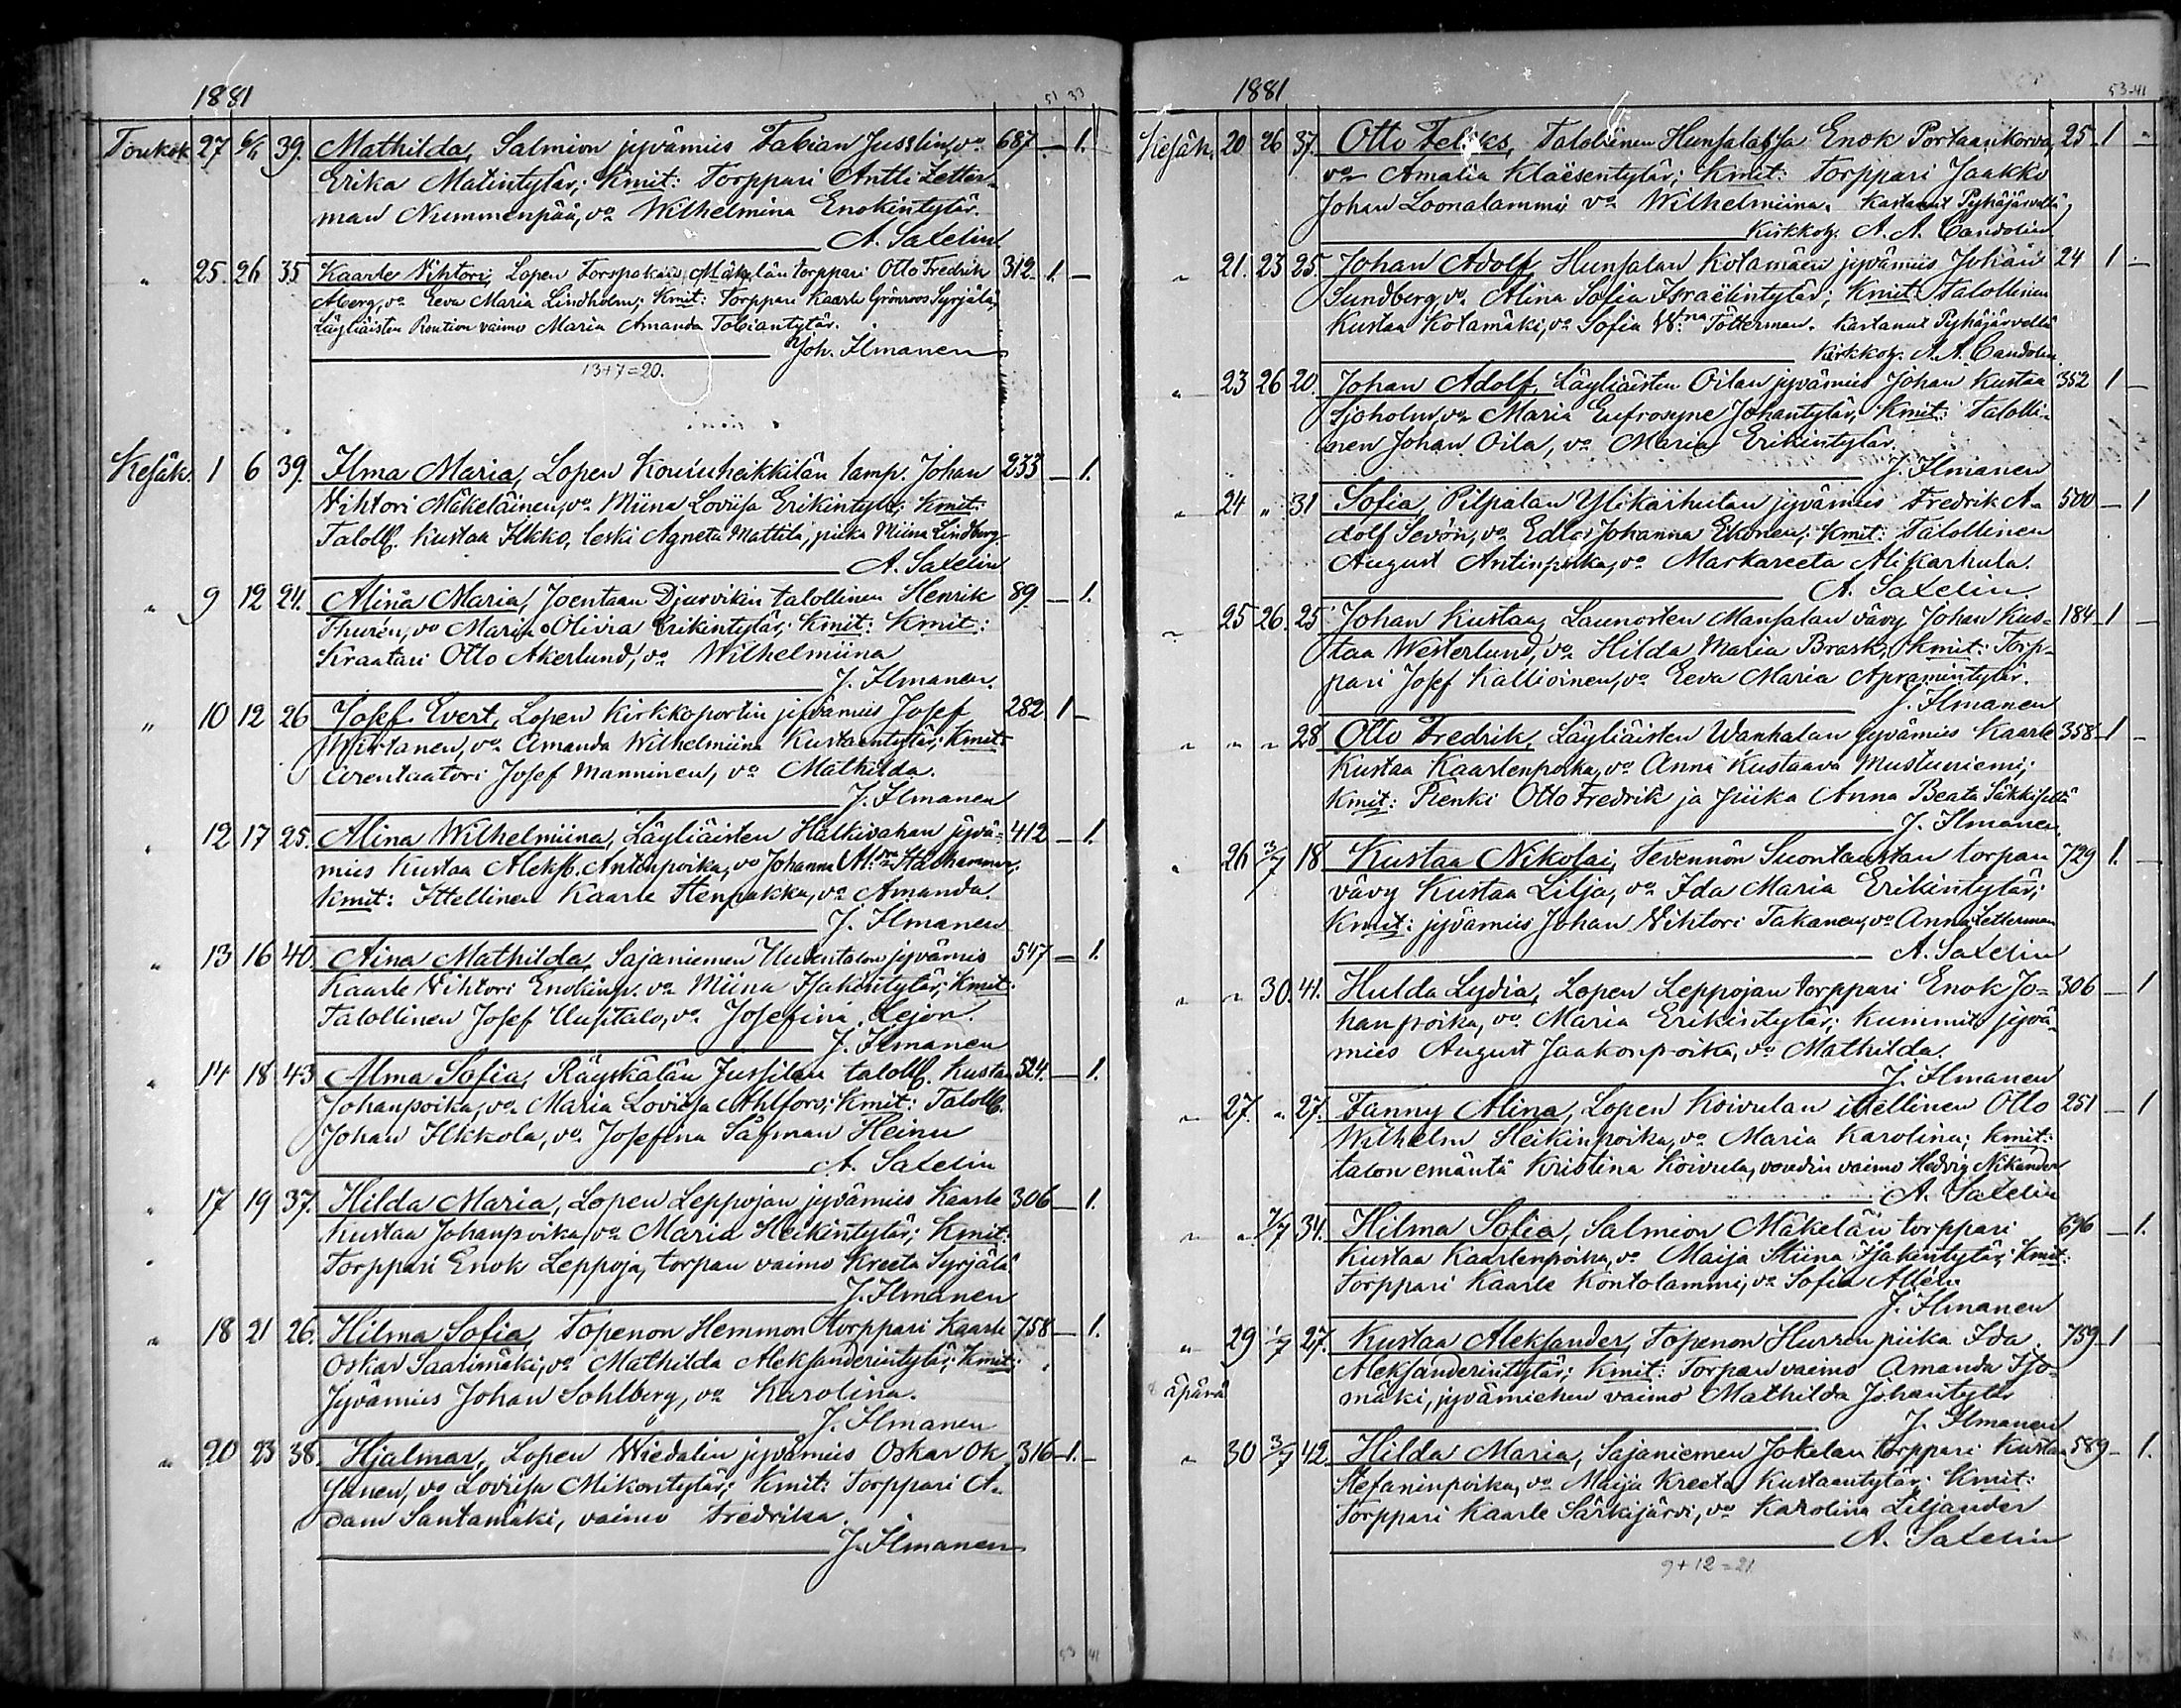 1881
51 33
Toukok. 27 6/6 39. Mathilda, Salmion jyvämies Fabian Jusslin, vo 687. — 1.
Erika Matintytär; Kmit: Torppari Antti Zetter-
man Nummenpää, vo Wilhelmina Enokintytär.
A. Saxelin.
" 25. 26 35 Kaarle Vihtori, Lopen Mäkelän torppari Otto Fredrik 312. 1. —
Åberg, vo Eeva Maria Lindholm; Kmit: Torppari Kaarle Grönroos Syrjälä,
Läyliäisten Roution vaimo Maria Amanda Tobiantytär.
Joh. Ilmanen
13+7=20.
Kesäk. 1 6 39. Ilma Maria, Lopen Kouvuheikkilän lamp. Johan 233 — 1.
Vihtori Mäkeläinen, vo Miina Lovisa Erikintytär; Kmit:
Taloll. Kustaa Ilkko, leski Agneta Mattila, piika Miina Lindberg.
A. Saxelin
" 9 12 24. Alina Maria, Joentaan Djurvikin talollinen Henrik 89. — 1.
Thurén, vo Maria Olivia Erikintytär; Kmit: Kmit:
Kraatari Otto Åkerlund, vo Wilhelmiina
J. Ilmanen.
" 10 12 26 Josef Evert, Lopen Kirkkoportin jyvämies Josef 282. 1 —
Wirtanen, vo Amanda Wilhelmiina Kustaantytär; Kmit:
Arentaatori Josef Manninen, vo Mathilda.
J. Ilmanen
" 12 17 25. Alina Wilhelmiina, Läyliäisten Hälkivahan jyvä- 412 — 1.
mies Kustaa Aleks. Antonpoika, vo Johanna Stålhammar,
Kmit: Ittellinen Kaarle Stenpakka, vo Amanda.
J. Ilmanen
" 13 16 40. Aina Mathilda, Sajaniemen Uudentalon jyvämies 547 — 1.
Kaarle Vihtori Enokinp. vo Miina Isakintytär; Kmit:
Talollinen Josef Uusitalo, vo Josefina Lejon.
J. Ilmanen
" 14 18 43 Alma Sofia, Räyskälän Jussilan taloll. Kustaa 524. — 1.
Johanpoika, vo Maria Lovisa Ahlfors; Kmit: Taloll.
Johan Ilkkola, vo Josefina Safman Heinu
A. Saxelin
" 17 19 37. Hilda Maria, Lopen Leppojan jyvämies Kaarle 306 — 1.
Kustaa Johanpoika, vo Maria Heikintytär; Kmit:
Torppari Enok Leppoja, torpan vaimo Kreeta Syrjälä
J. Ilmanen
" 18 21 26. Hilma Sofia, Topenon Hemmon torppari Kaarle 758 — 1.
Oskar Saarimäki, vo Mathilda Aleksanderintytär; Kmit:
Jyvämies Johan Sohlberg, vo Karolina.
J. Ilmanen
" 20 23 38. Hjalmar, Lopen Wiedalin jyvämies Oskar Ok- 316 — 1. —
sanen, vo Lovisa Mikontytär; Kmit: Torppari A-
dam Santamäki, vaimo Fredrika.
J. Ilmanen
53 41
1881
53-41
Kesäk. 20 26 37. Otto Feliks, Talollinen Hunsalassa Enok Portaankorva, 25 — 1 —
vo Amalia Kläësentytär; Kmit: Torppari Jaakko
Johan Loonalammi vo Wilhelmiina. Kastanut Pyhäjärvellä,
Kirkkoh. A. A. Candolin
" 21. 23 25. Johan Adolf, Hunsalan Kotamäen jyvämies Johan 24 1 —
Sundberg, vo Alina Sofia Israëlintytär; Kmit: Talollinen
Kustaa Kotamäki, vo Sofia W:na Tötterman. Kastanut Pyhäjärvellä
Kirkkoh. A. A. Candolin.
" 23 26 20. Johan Adolf, Läyliäisten Oilan jyvämies Johan Kustaa 352 1 —
Sjöholm, vo Maria Eufrosyne Johantytär, Kmit: Talolli-
nen Johan Oila, vo Maria Erikintytär
J. Ilmanen
" 24 " 31 Sofia, Pilpalan Ylikarhulan jyvämies Fredrik A- 500 — 1
dolf Sevón, vo Edla Johanna Ekonen; Kmit: Talollinen
August Antinpoika, vo Markareeta Alikarhula.
A. Saxelin.
" 25 26. 25 Johan Kustaa, Launosten Mansalan vävy Johan Kus- 184 1 —
taa Westerlund, vo Hilda Maria Brask; Kmit: Torp-
pari Josef Kallioinen, vo Eeva Maria Apramintytär.
J. Ilmanen
" " " 28 Otto Fredrik, Läyliäisten Wanhalan jyvämies Kaarle 358 — 1 —
Kustaa Kaarlenpoika, vo Anna Kustaava Mustuniemi;
Kmit: Renki Otto Fredrik ja piika Anna Beata Säkkiseltä
J. Ilmanen.
" 26 3/7 18 Kustaa Nikolai, Tevennön Suontaustan torpan 729 1. —
vävy Kustaa Lilja, vo Ida Maria Erikintytär;
Kmit: jyvämies Johan Vihtori Takanen, vo Anna Zetterman
A. Saxelin
" " 30. 41. Hulda Lydia, Lopen Leppojan torppari Enok Jo- 306 — 1
hanpoika, vo Maria Erikintytär; Kummit: jyvä-
mies August Jaakonpoika, vo Mathilda.
J. Ilmanen
" 27. " 27. Fanny Alina, Lopen Koivulan itellinen Otto 251 — 1
Wilhelm Heikinpoika, vo Maria Karolina; Kmit:
talon emäntä Kristina Koivula, voudin vaimo Hedvig Nikander
A. Saxelin
" " 7/7 34. Hilma Sofia, Salmion Mäkelän torppari 696 — 1.
Kustaa Kaarlenpoika, vo Maija Stiina Isakintytär; Kmit:
Torppari Kaarle Kontolammi, vo Sofia Allén.
J. Ilmanen
" 29 1/7 27. Kustaa Aleksander, Topenon Hurren piika Ida 759 — 1
Aleksanderintytär; Kmit: Torpan vaimo Amanda Iso-
äpärä mäki, jyvämiehen vaimo Mathilda Johantytär
J. Ilmanen
" 30 3/7 42. Hilda Maria, Sajaniemen Jokelan torppari Kustaa 589 — 1.
Stefaninpoika, vo Maija Kreeta Kustaantytär; Kmit:
Torppari Kaarle Särkijärvi, vo Karolina Liljander
A. Saxelin
9+12=21